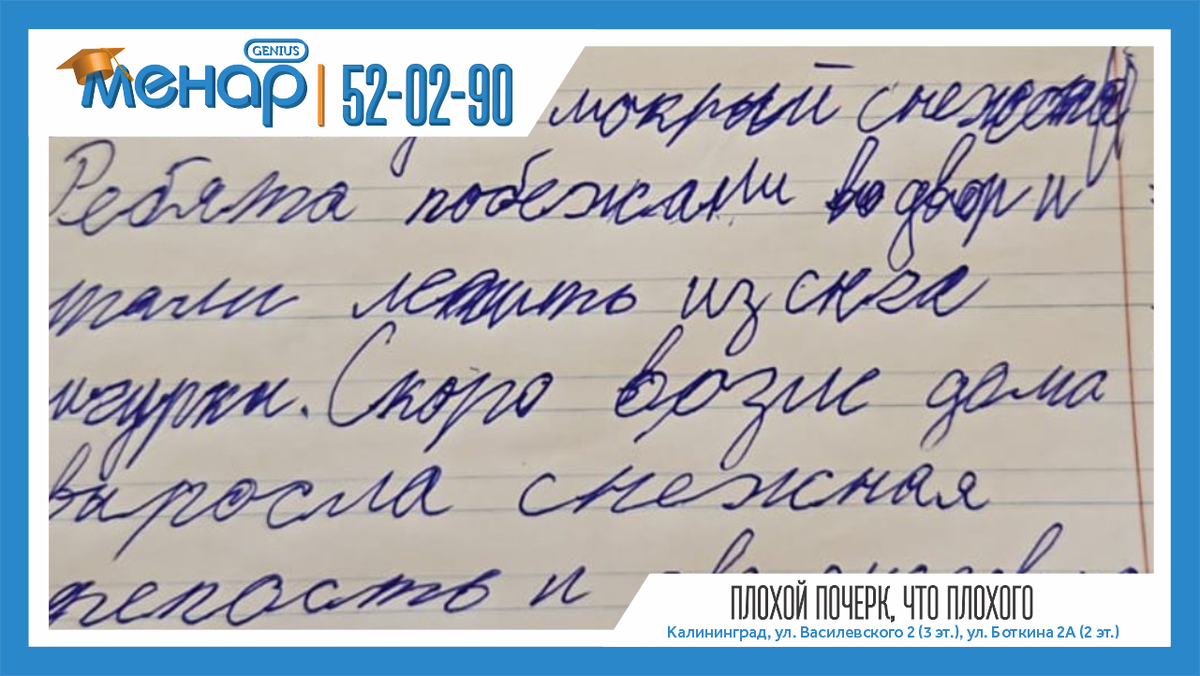 GENIUS
Менар
52-02-90
мокрый снежок
Ребята побежали во двор и
тали лепить из снга
игурки. Скоро возле дома
выросла снежная
репость и
ПЛОХОЙ ПОЧЕРК, ЧТО ПЛОХОГО
Калининград, ул. Василевского 2 (3 эт.), ул. Боткина 2А (2 эт.)